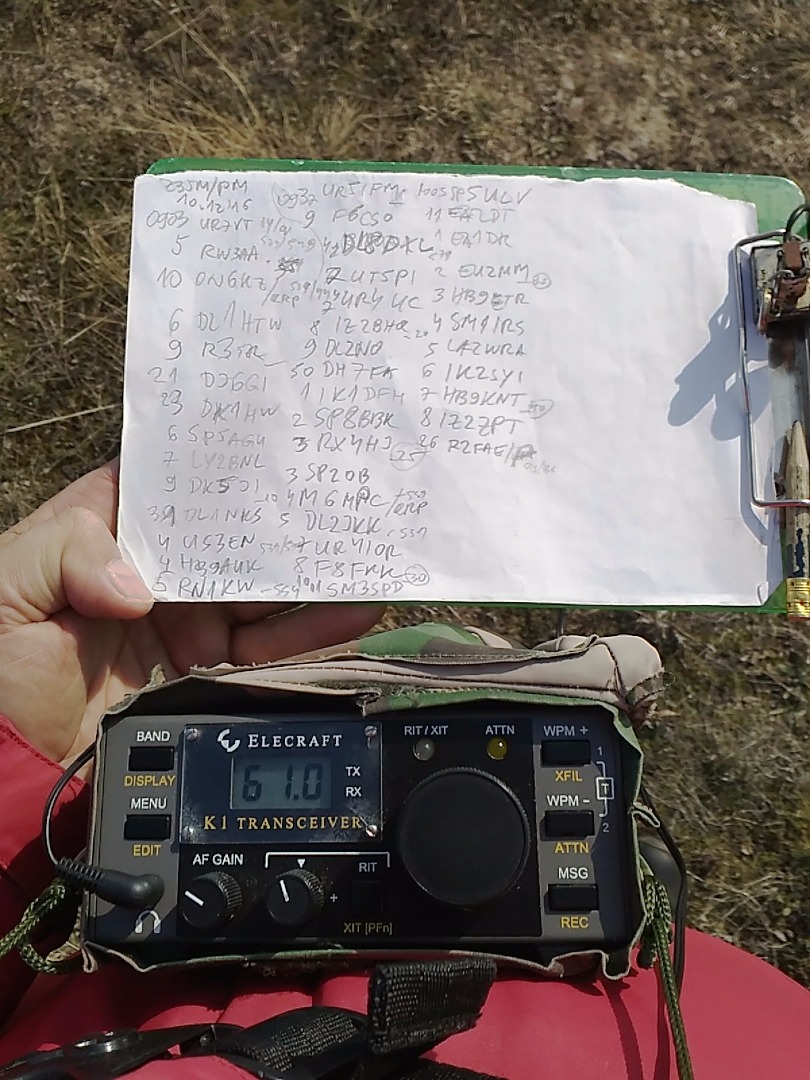 235M/PM
10.12.16
0903 UR7VT
5 RW3AA
10 ON6KZ
/QRP
6 DL1HTW
9
21 DJ6GI
23 DK1HW
6 SP5AGU
7 LY2BNL
9 DK5JI
39 DL1NKS
4 US3EN
4 HB9AUK
5 RN1KW -559
0937 UR5IFM
9 F6CSO
DL8DXL
7 UT5PI
7 UR4UC
8 IZ2BHQ 20
9 DL2NO
50 DH7FA
1 IK1DFH
2 SP8BBK
3 RX4HJ 25
3 SP2OB
4 M6MPC /QRP
5 DL2JKK
7 UR4IOR
8 F8FKK 30
1011 SM3SPD
SP5ULV
11 EA2LDT
1 EA1DR
2 EU2MM 35
3 HB9ETR
4 SM4IRS
5 LA2WRA
6 IK2SYI
7 HB9KNT 40
8 IZ2ZPT
26 R2FAE/P
BAND
DISPLAY
MENU
EDIT
ELECRAFT
61.0
TX
RX
K1 TRANSCEIVER
AF GAIN
RIT
+
XIT [PFn]
RIT / XIT
ATTN
WPM +
1
XFIL
T
WPM -
2
ATTN
MSG
REC